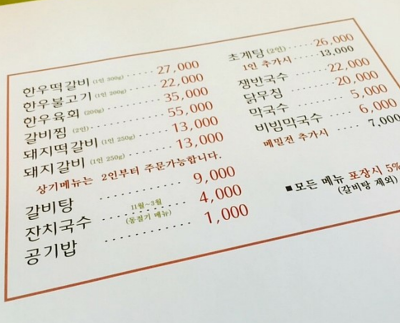 한우떡갈비 (1인 200g) ······ 27,000
한우불고기 (1인 200g) ······ 22,000
한우육회 (200g) ······ 35,000
갈비찜 (2인) ······ 55,000
돼지떡갈비 (1인 250g) ······ 13,000
돼지갈비 (1인 250g) ······ 13,000
상기메뉴는 2인부터 주문가능합니다.
갈비탕 ······ 9,000
잔치국수 11월~3월 (동절기 메뉴) ······ 4,000
공기밥 ······ 1,000
초계탕 (2인) ······ 26,000
1인 추가시 ······ 13,000
쟁반국수 ······ 22,000
닭무침 ······ 20,000
막국수 ······ 5,000
비빔막국수 ······ 6,000
메밀전 추가시 ···· 7,000
■모든 메뉴 포장시 5%
(갈비탕 제외)